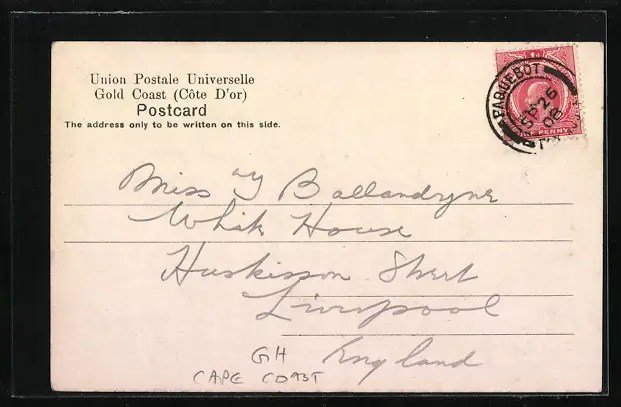 Union Postale Universelle
Gold Coast (Côte D'or)
Postcard
The address only to be written on this side.
PAQUEBOT
SP 26
08
ONE PENNY
Miss Ballandyne
White House
Huskisson Street
Liverpool
England
GH
CAPE COAST